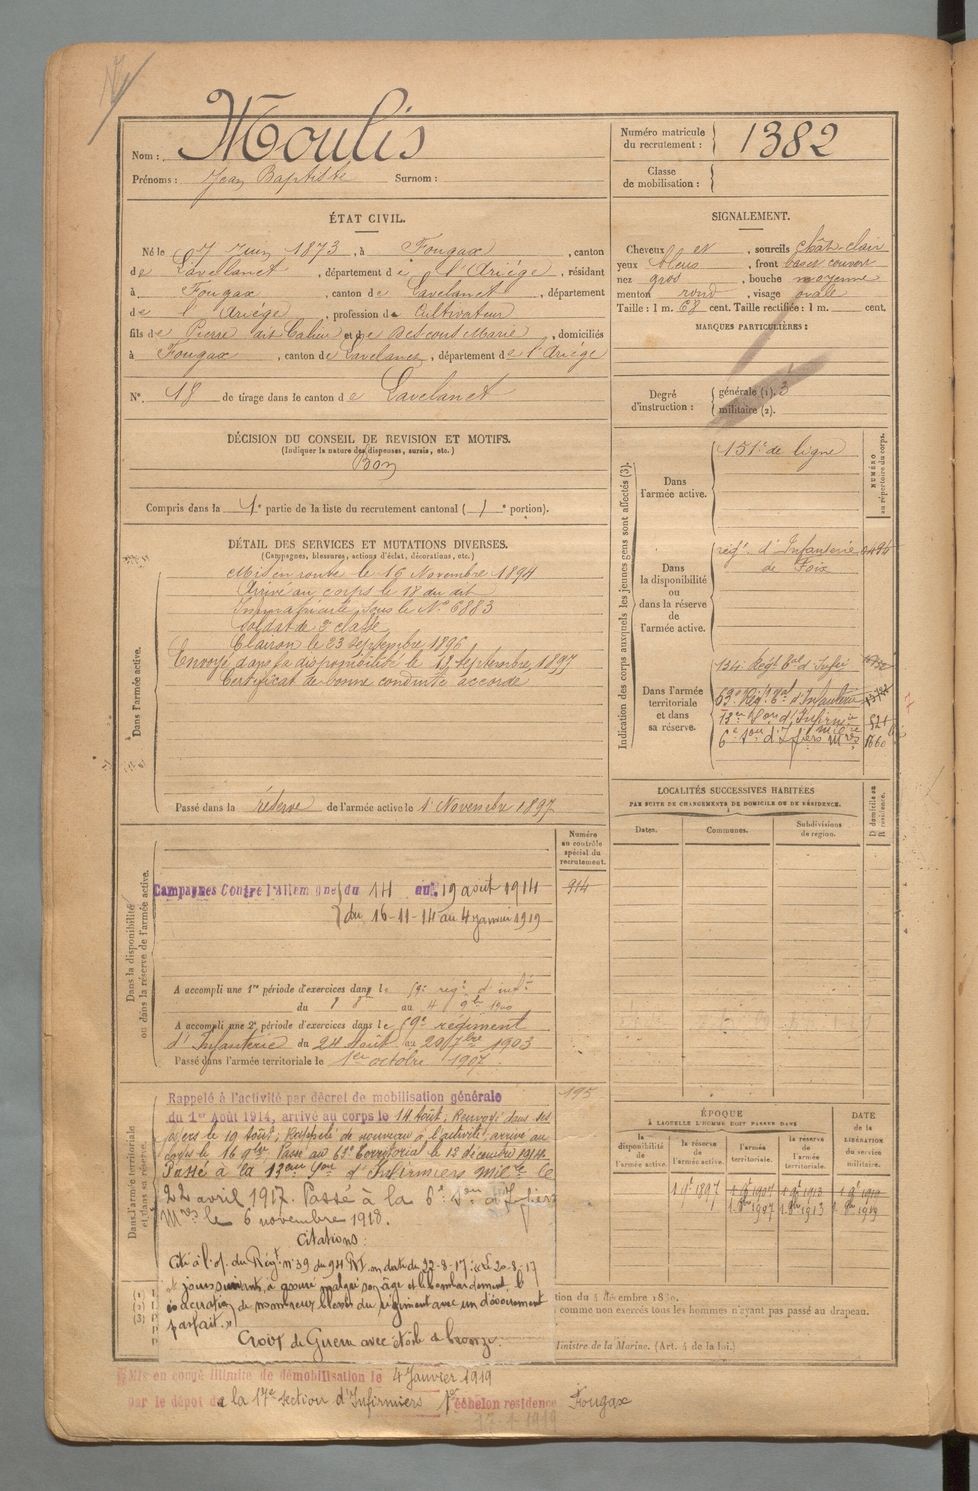 Nom : Moulis
Prénoms : Jean Baptiste Surnom :
Numéro matricule
du recrutement : 1382
Classe
de mobilisation :
ÉTAT CIVIL.
Né le 7 Juin 1873, à Fougax, canton
de Lavelanet, département de l'Ariége, résidant
à Fougax, canton de Lavelanet, département
de l'Ariége, profession de Cultivateur
fils de Pierre dit et de Marie, domiciliés
à Fougax, canton de Lavelanet, département de l'Ariége
N°. 18 de tirage dans le canton de Lavelanet
SIGNALEMENT.
Cheveux et, sourcils chât-clair
yeux bleus, front couvert
nez gros, bouche moyenne
menton rond, visage ovale
Taille : 1 m. 68 cent. Taille rectifiée : 1 m. cent.
MARQUES PARTICULIÈRES :
Degré
d'instruction :
générale (1). 3
militaire (2).
DÉCISION DU CONSEIL DE REVISION ET MOTIFS.
(Indiquer la nature des dispenses, sursis, etc.)
Bon
Compris dans la 1e partie de la liste du recrutement cantonal ( e portion).
DÉTAIL DES SERVICES ET MUTATIONS DIVERSES.
(Campagnes, blessures, actions d'éclat, décorations, etc.)
Dans l'armée active.
Mis en route le 16 Novembre 1894
Arrivé au corps le 18 du dit
Immatriculé sous le N° 6883
Soldat de 2e classe
Clairon le 23 Septembre 1896
Envoyé dans la disponibilité le 18 Septembre 1897
Certificat de bonne conduite accordé
Passé dans la réserve de l'armée active le 1 Novembre 1897
Indication des corps auxquels les jeunes gens sont affectés (3).
NUMÉRO
au répertoire du corps.
Dans
l'armée active.
151e de ligne
Dans
la disponibilité
ou
dans la réserve
de
l'armée active.
régt. d'Infanterie
de Foix
Dans l'armée
territoriale
et dans
sa réserve.
134e Régt d'Infie
63e Régt d'Infanterie
13e Son d'Infirmiers 521
6e Son d'Infiers Mres 1660
LOCALITÉS SUCCESSIVES HABITÉES
PAR SUITE DE CHANGEMENTS DE DOMICILE OU DE RÉSIDENCE.
Dates.
Communes.
Subdivisions
de région.
D domicile ou
R résidence.
Numéro
au contrôle
spécial du
recrutement.
914
Dans la disponibilité
ou dans la réserve de l'armée active.
Campagnes Contre l'Allemagne du 14 au 19 août 1914
du 16-11-14 au 4 janvier 1919
A accompli une 1re période d'exercices dans le régt d'infie
du au 1900
A accompli une 2e période d'exercices dans le 59e régiment
d'Infanterie du 24 Août au 20 7bre 1903
Passé dans l'armée territoriale le 1er octobre 1907
195
Dans l'armée territoriale
et dans sa réserve.
Rappelé à l'activité par décret de mobilisation générale
du 1er Août 1914, arrivé au corps le 14 Août; Renvoyé dans ses
foyers le 19 Août; Rappelé de nouveau à l'activité, arrivé au
corps le 16 9bre Passé au Territorial le 12 décembre 1914
Passé à la 13eme Son d'Infirmiers Milre le
22 avril 1917. Passé à la 6e Son d'Infiers
Mres le 6 novembre 1918.
Citations :
Cité à l'o. du Régt n° 39 du 94 RI en date du 22-8-17 : « Le 20-8-17
et jours suivants, a assuré malgré son âge et le bombardement, l'
évacuation de nombreux blessés du régiment avec un dévouement
parfait. »
Croix de Guerre avec étoile de bronze.
ÉPOQUE
À LAQUELLE L'HOMME DOIT PASSER DANS
la
disponibilité
de
l'armée active.
la réserve
de
l'armée active.
l'armée
territoriale.
la réserve
de
l'armée
territoriale.
DATE
de la
LIBÉRATION
du service
militaire.
1 9bre 1897 1 9bre 1907 1 9bre 1913 1 9bre 1919
1 8bre 1907 1 8bre 1913 1 8bre 1919
(1)
(2)
(3)
comme non exercés tous les hommes n'ayant pas passé au drapeau.
Ministre de la Marine. (Art. 4 de la loi.)
Mis en congé illimité de démobilisation le 4 Janvier 1919
par le dépôt de la 17e section d'Infirmiers 1er échelon résidence Fougax